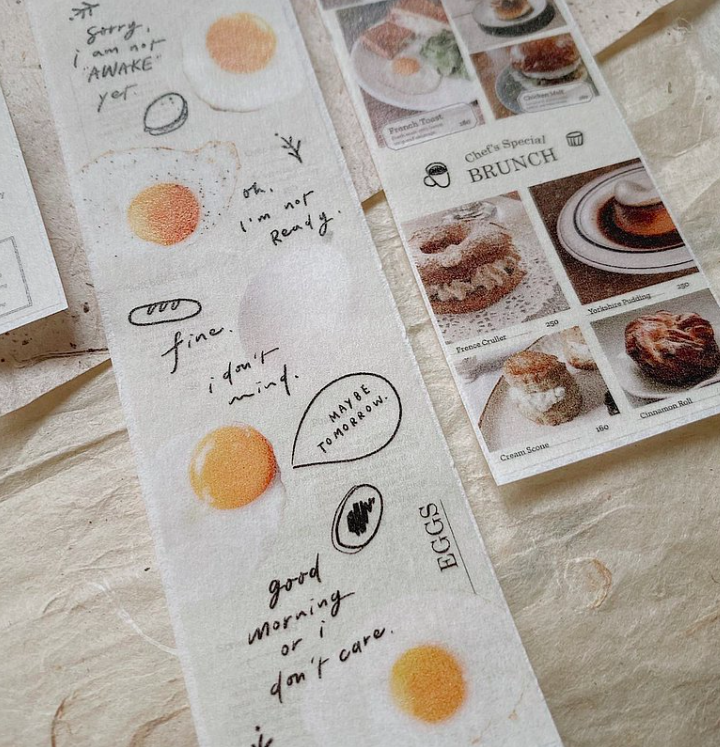 sorry,
i am not
"AWAKE"
yet.
oh,
i'm not
Ready.
fine.
i don't
mind.
MAYBE
TOMORROW.
EGGS
good
morning
or i
don't care.
French Toast
180
Chicken Melt
Chef's Special
BRUNCH
Frence Cruller
250
Yorkshire Pudding
250
Cream Scone
160
Cinnamon Roll